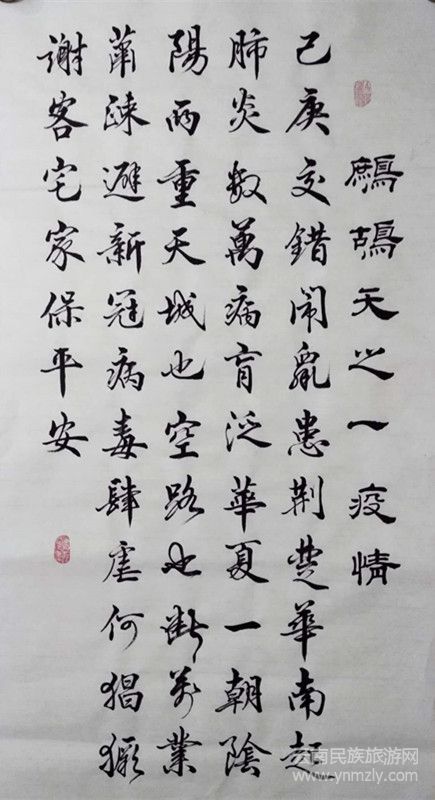 鷓鴣天之一疫情
己庚交錯闹亂患荆楚華南起
肺炎数萬病肓泛華夏一朝陰
陽两重天城也空路也断萬業
蕭疎避新冠病毒肆虐何猖獗
謝客宅家保平安
云南民族旅游网
www.ynmzly.com